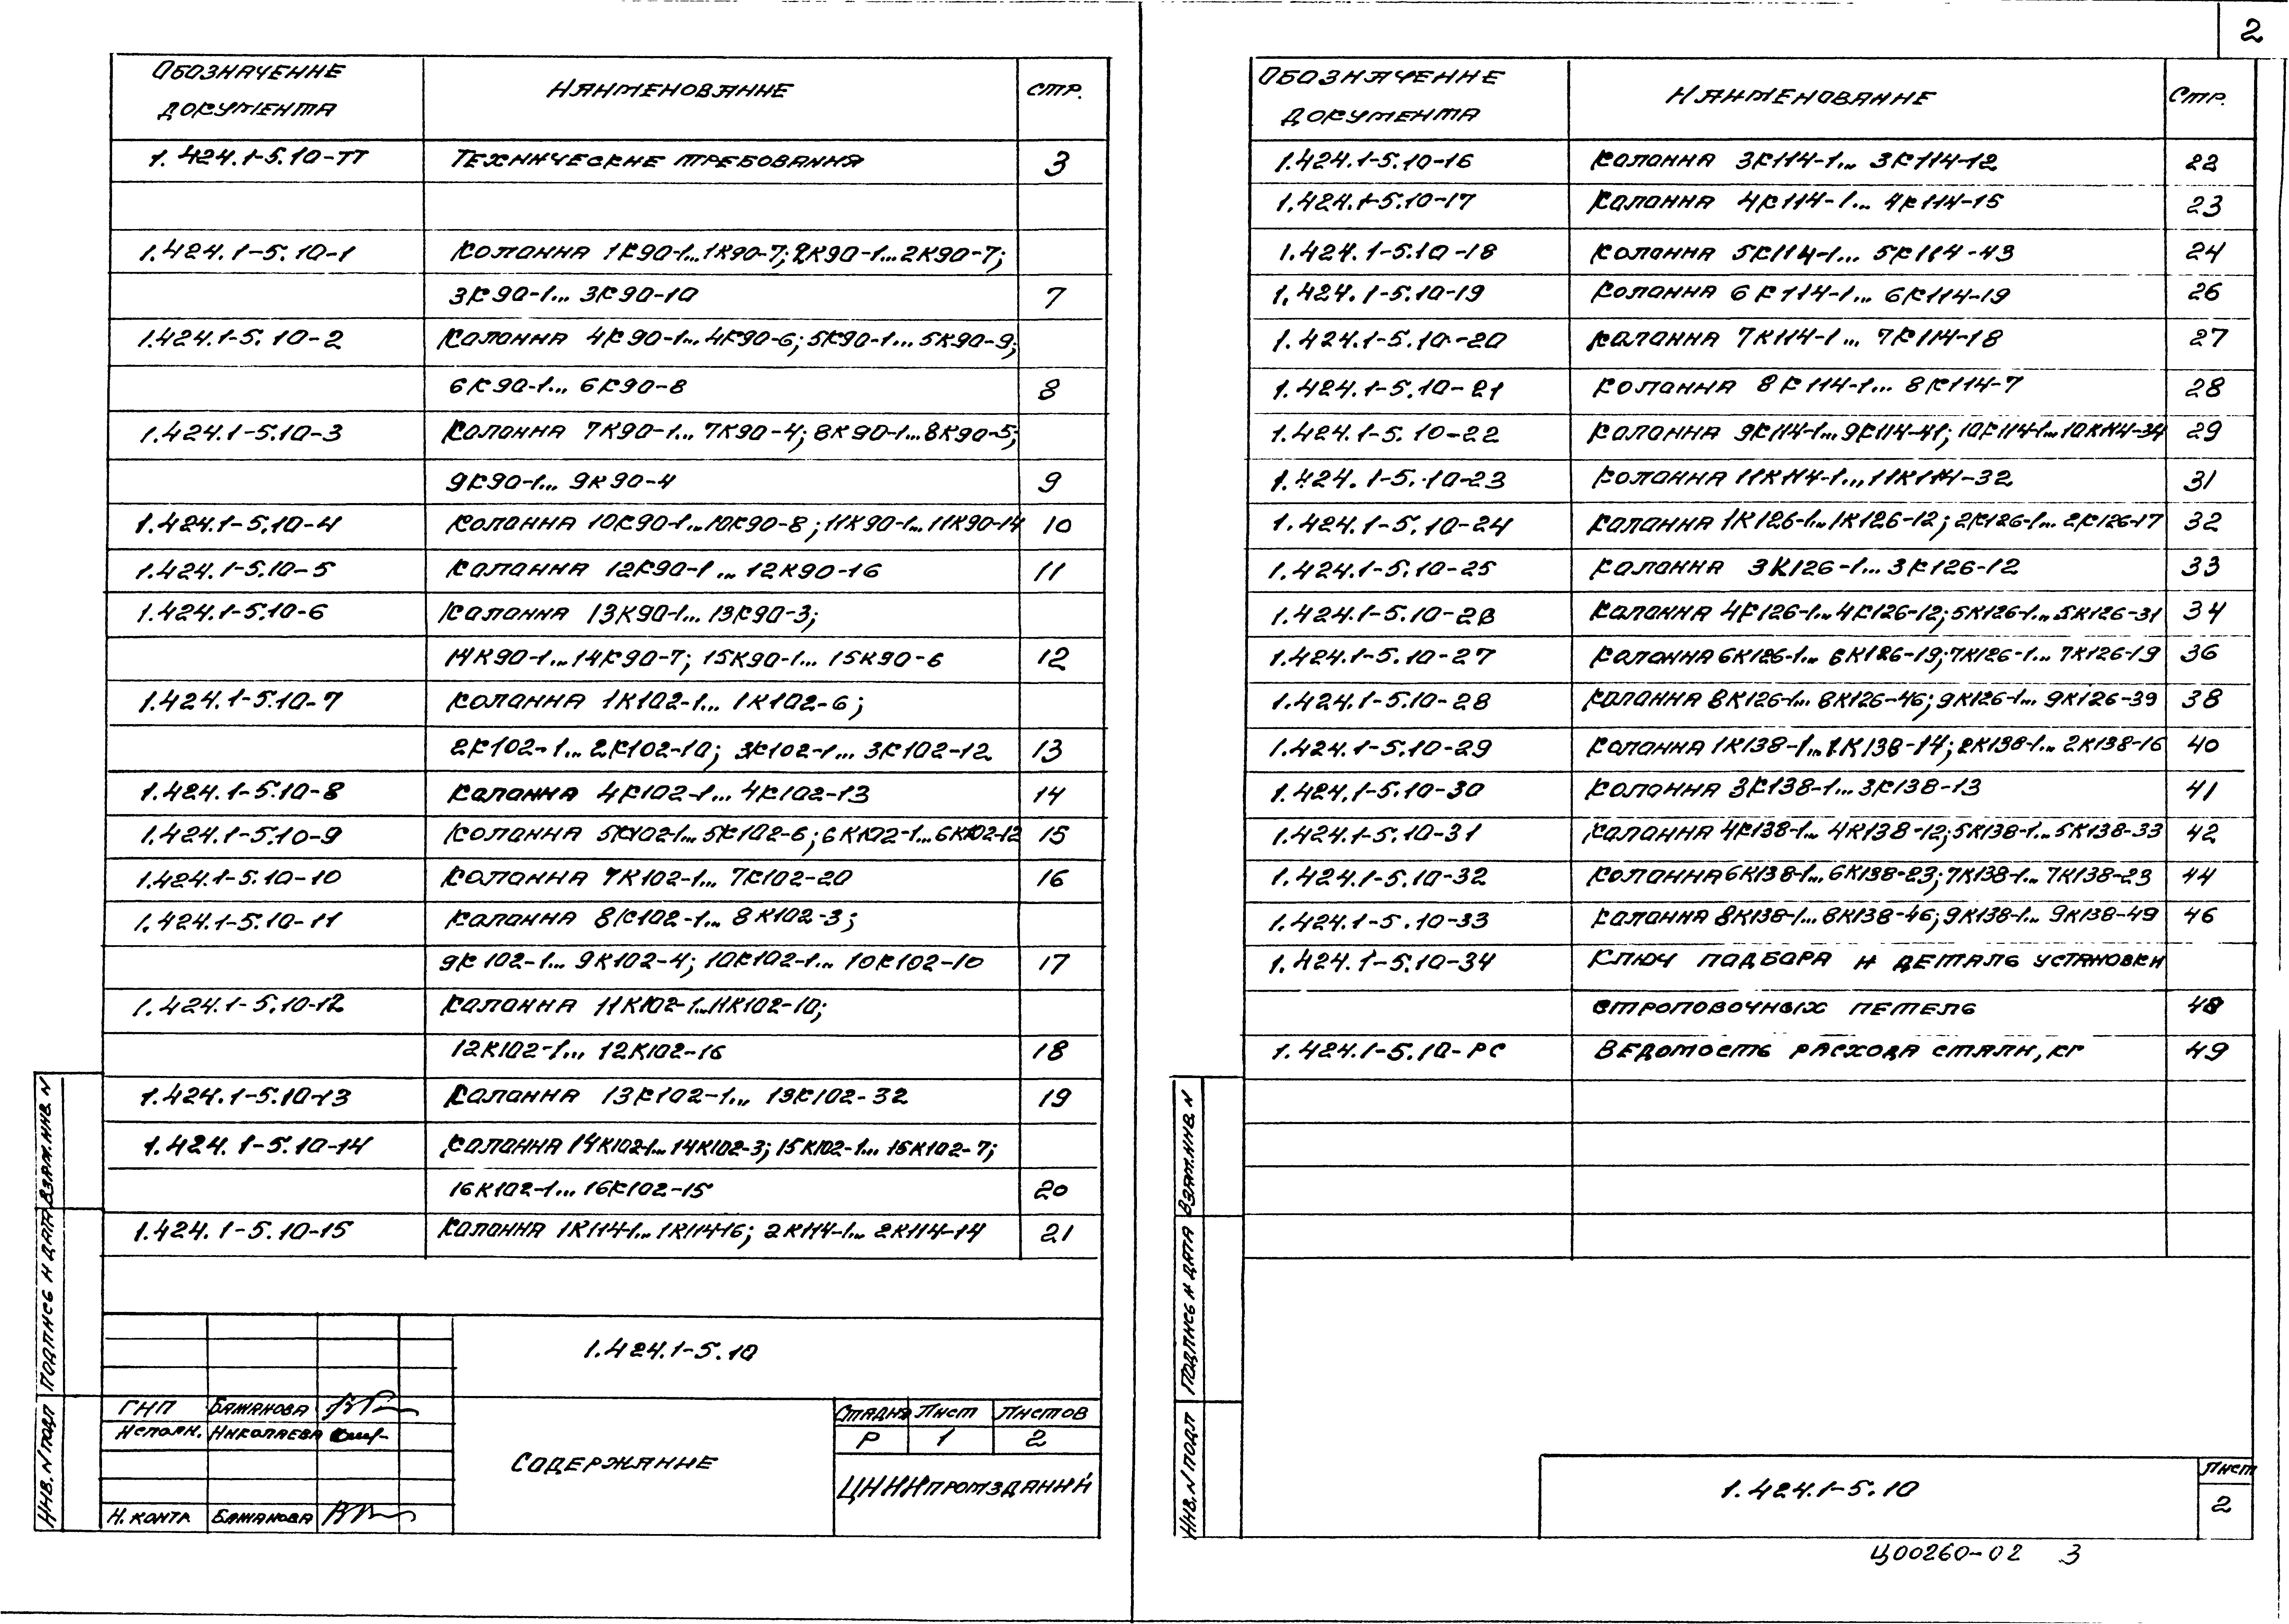 2
Обозначение документа Наименование стр.
1.424.1-5.10-ТТ Технические требования 3
1.424.1-5.10-1 Колонна 1К90-1...1К90-7; 2К90-1...2К90-7;
3К90-1... 3К90-10 7
1.424.1-5.10-2 Колонна 4К90-1...4К90-6; 5К90-1...5К90-9;
6К90-1... 6К90-8 8
1.424.1-5.10-3 Колонна 7К90-1... 7К90-4; 8К90-1...8К90-5;
9К90-1... 9К90-4 9
1.424.1-5.10-4 Колонна 10К90-1...10К90-8; 11К90-1...11К90-14 10
1.424.1-5.10-5 Колонна 12К90-1...12К90-16 11
1.424.1-5.10-6 Колонна 13К90-1...13К90-3;
14К90-1...14К90-7; 15К90-1...15К90-6 12
1.424.1-5.10-7 Колонна 1К102-1...1К102-6;
2К102-1...2К102-10; 3К102-1...3К102-12 13
1.424.1-5.10-8 Колонна 4К102-1...4К102-13 14
1.424.1-5.10-9 Колонна 5К102-1...5К102-6; 6К102-1...6К102-12 15
1.424.1-5.10-10 Колонна 7К102-1...7К102-20 16
1.424.1-5.10-11 Колонна 8К102-1...8К102-3;
9К102-1...9К102-4; 10К102-1...10К102-10 17
1.424.1-5.10-12 Колонна 11К102-1...11К102-10;
12К102-1...12К102-16 18
1.424.1-5.10-13 Колонна 13К102-1... 13К102-32 19
1.424.1-5.10-14 Колонна 14К102-1...14К102-3; 15К102-1...15К102-7;
16К102-1...16К102-15 20
1.424.1-5.10-15 Колонна 1К114-1...1К114-16; 2К114-1...2К114-14 21
1.424.1-5.10
ГИП Бажанова
Исполн. Николаева
Н. контр Бажанова
Содержание
Стадия Лист Листов
Р 1 2
ЦНИИпромзданий
Инв. N подл Подпись и дата Взам. инв. N
Обозначение документа Наименование Стр.
1.424.1-5.10-16 Колонна 3К114-1... 3К114-12 22
1.424.1-5.10-17 Колонна 4К114-1... 4К114-15 23
1.424.1-5.10-18 Колонна 5К114-1... 5К114-43 24
1.424.1-5.10-19 Колонна 6К114-1... 6К114-19 26
1.424.1-5.10-20 Колонна 7К114-1... 7К114-18 27
1.424.1-5.10-21 Колонна 8К114-1... 8К114-7 28
1.424.1-5.10-22 Колонна 9К114-1...9К114-41; 10К114-1...10К114-34 29
1.424.1-5.10-23 Колонна 11К114-1...11К114-32 31
1.424.1-5.10-24 Колонна 1К126-1...1К126-12; 2К126-1...2К126-17 32
1.424.1-5.10-25 Колонна 3К126-1...3К126-12 33
1.424.1-5.10-26 Колонна 4К126-1...4К126-12; 5К126-1...5К126-31 34
1.424.1-5.10-27 Колонна 6К126-1... 6К126-19; 7К126-1... 7К126-19 36
1.424.1-5.10-28 Колонна 8К126-1... 8К126-46; 9К126-1... 9К126-39 38
1.424.1-5.10-29 Колонна 1К138-1...1К138-14; 2К138-1... 2К138-16 40
1.424.1-5.10-30 Колонна 3К138-1...3К138-13 41
1.424.1-5.10-31 Колонна 4К138-1... 4К138-12; 5К138-1...5К138-33 42
1.424.1-5.10-32 Колонна 6К138-1...6К138-23; 7К138-1... 7К138-23 44
1.424.1-5.10-33 Колонна 8К138-1...8К138-46; 9К138-1... 9К138-49 46
1.424.1-5.10-34 Ключ подбора и деталь установки
строповочных петель 48
1.424.1-5.10-РС Ведомость расхода стали, кг 49
Инв. N подл Подпись и дата Взам. инв. N
1.424.1-5.10
Лист
2
Ц00260-02 3